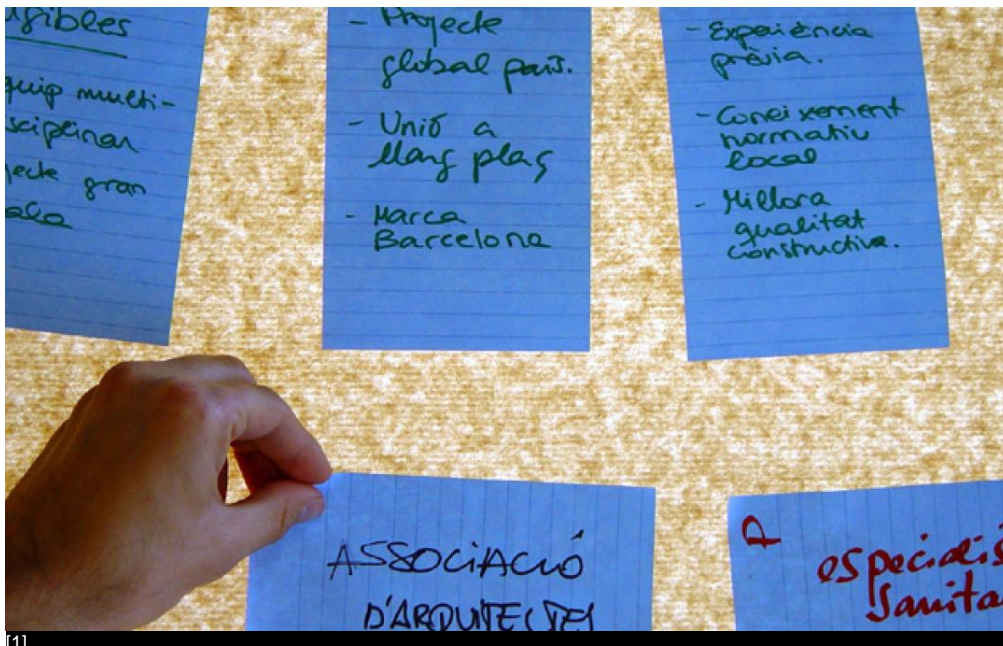 quip multi-
sciplinar
jecte gran
ala
- Projecte
global país.
- Unió a
llarg plaç
- Marca
Barcelona
- Experiència
prèvia.
- Coneixement
normatiu
local
- Millora
qualitat
constructiva.
ASSOCIACIÓ
D'ARQUITECTES
especialis
Sanita
[1]